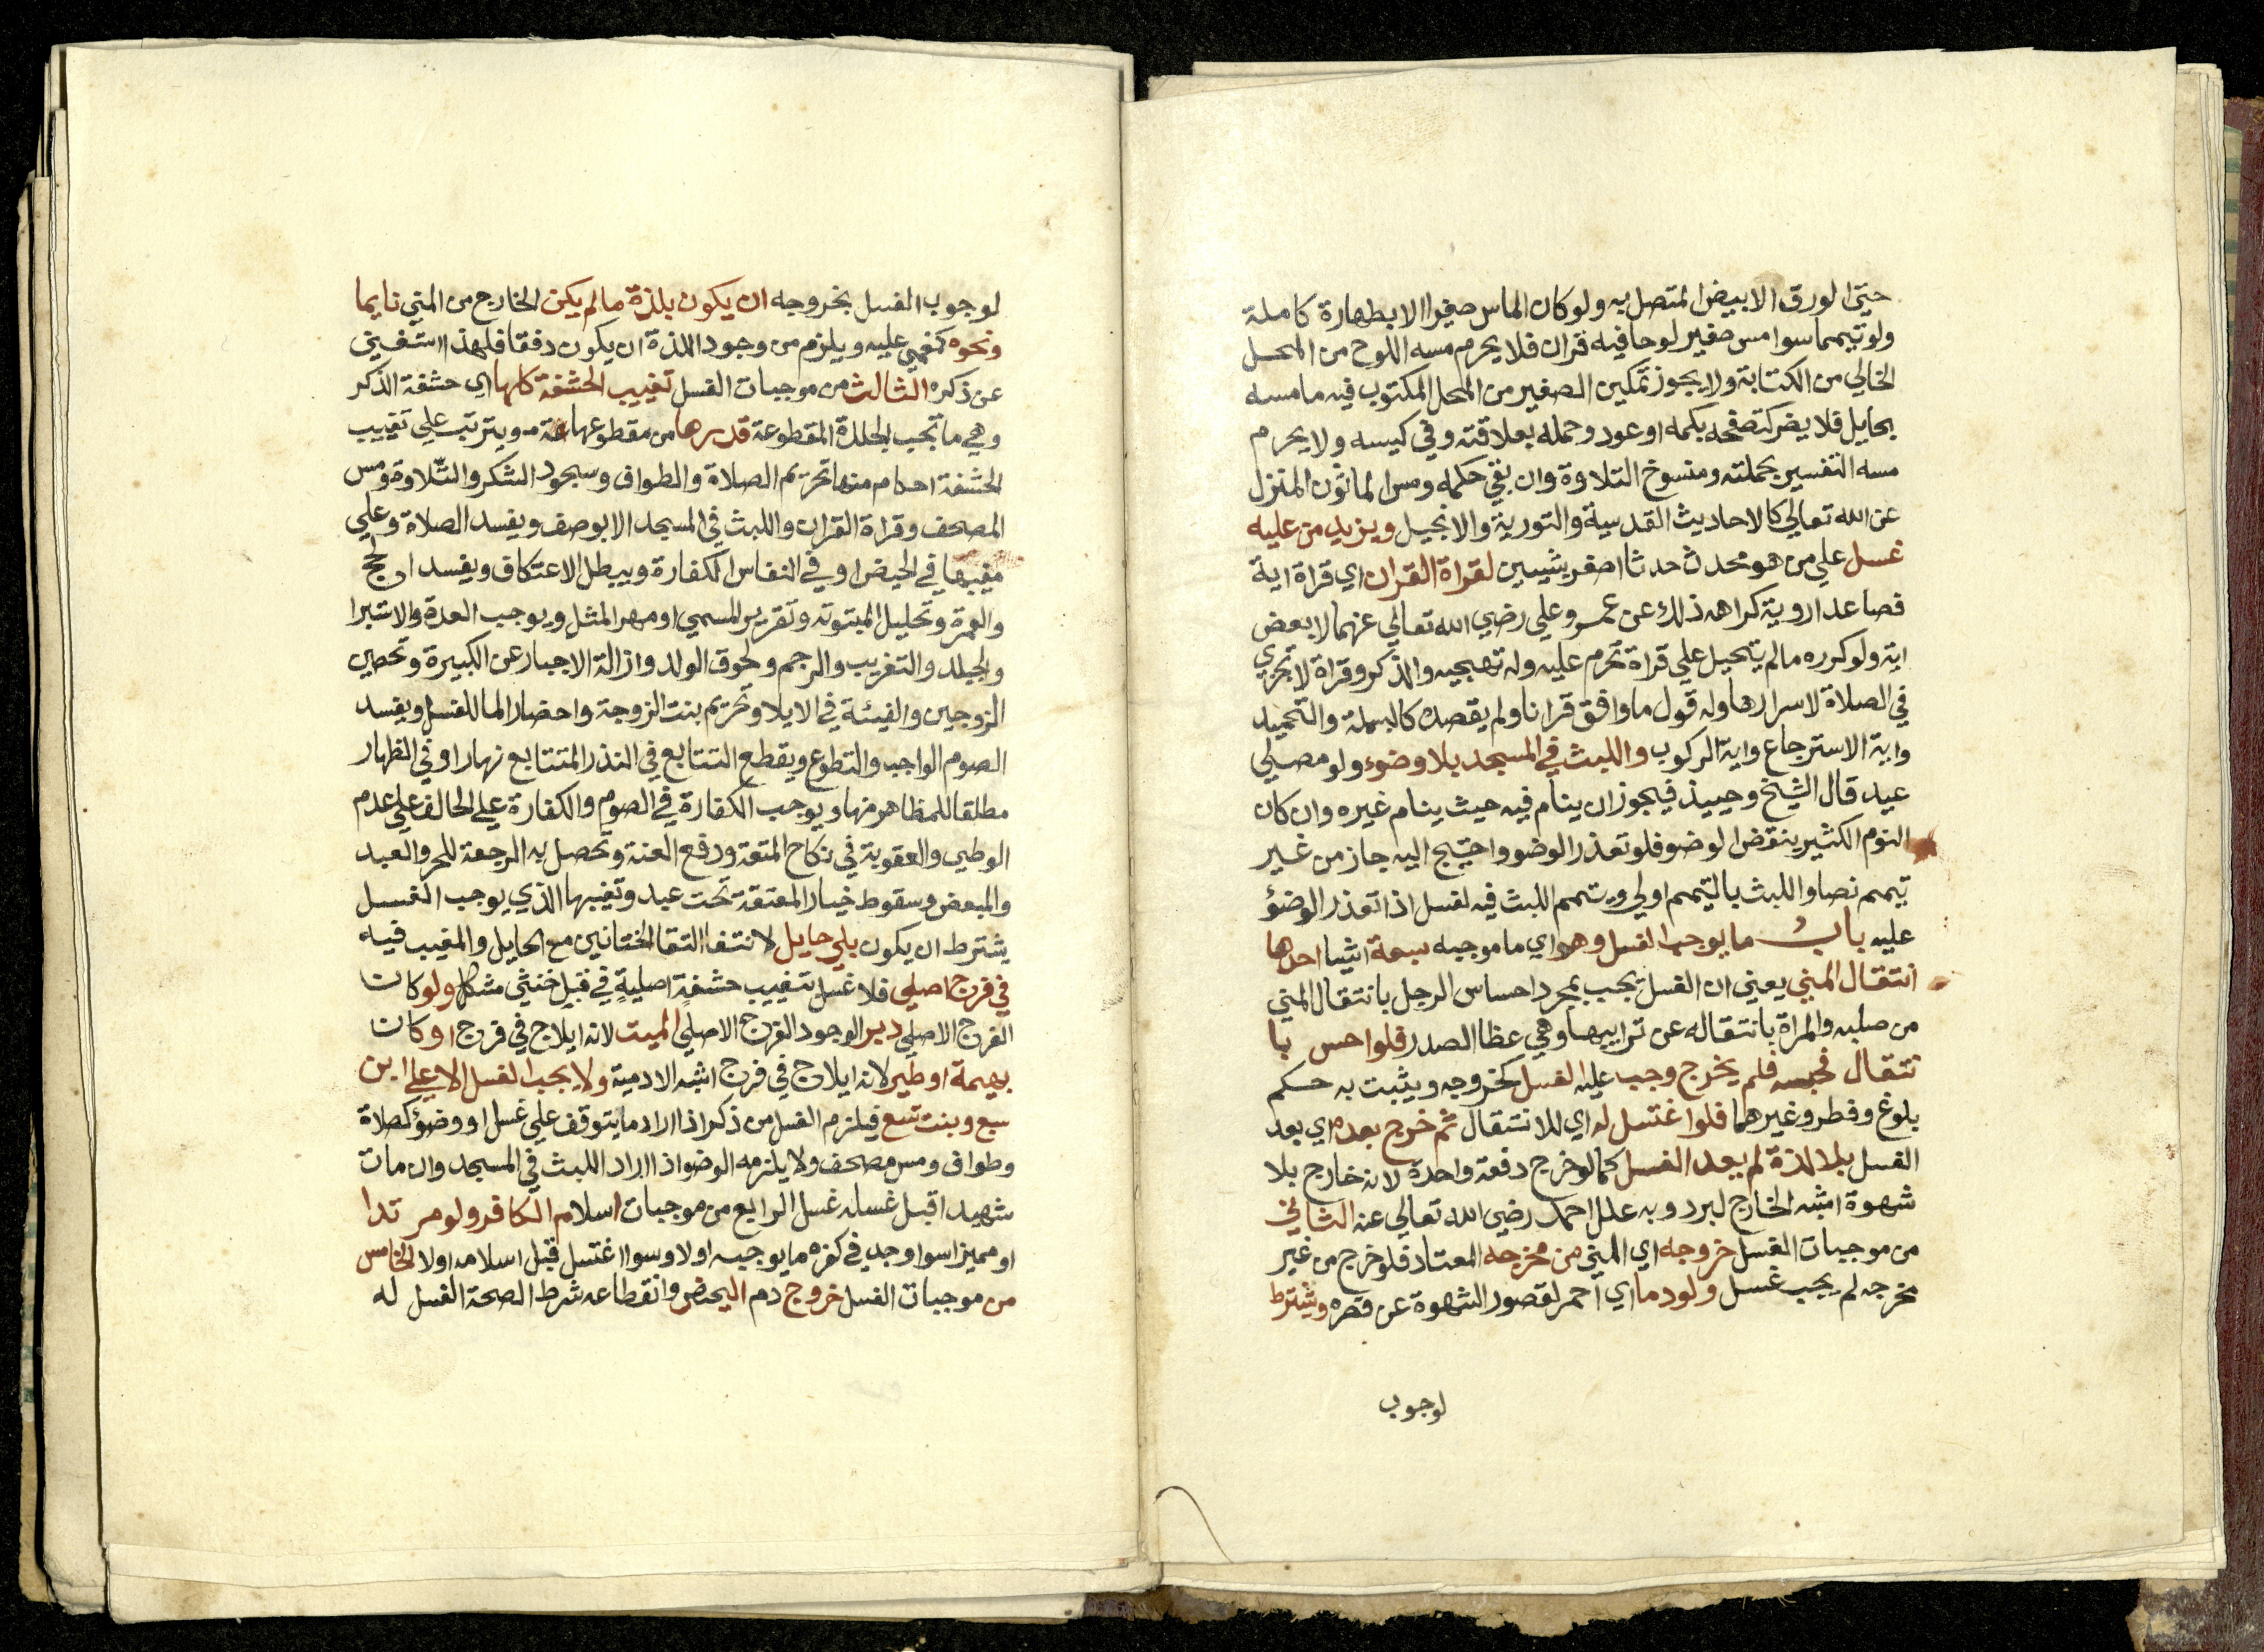 حتي الورق الابيض المتصل به ولو كان الماس صغيرا الا بطهارة كاملة
ولو تيمما سوا مس صغير لوحا فيه قران فلا يحرم مسه اللوح من المحل
الخالي من الكتابة ولا يجوز تمكين الصغير من المحل المكتوب فيه ما مسه
بحايل فلا يضر كتصفحه بكمه او عود وحمله بعلاقته وفي كيسه ولا يحرم
مسه التفسير بجملته ومنسوخ التلاوة وان بقي حكمه ومس الماثور المنزل
عن الله تعالي كالاحاديث القدسية والتورية والانجيل ويزيد من عليه
غسل علي من هو محدث حدثا اصغر بشيين لقراة القران اي قراة اية
فصاعدا روية كراهه ذلك عن عمر وعلي رضي الله تعالي عنهما لا بعض
اية ولو كرره مالم يتحيل علي قراة تحرم عليه وله تهجيه والذكر وقراة لا تجزي
في الصلاة لاسرارها وله قول ما وافق قرانا ولم يقصده كالبسملة والتحميد
واية الاسترجاع واية الركوب واللبث في المسجد بلا وضوء ولو مصلي
عيد قال الشيخ وحينيذ فيجوز ان ينام فيه حيث ينام غيره وان كان
النوم الكثير ينقض الوضو فلو تعذر الوضو واحتيج اليه جاز من غير
تيمم نصا واللبث بالتيمم اولي ويتيمم اللبث فيه لغسل اذا تعذر الوضؤ
عليه باب ما يوجب الغسل وهو اي ما موجبه سبعة اشيا احدها
انتقال المني يعني ان الغسل يجب بمجرد احساس الرجل بانتقال المني
من صلبه والمراة بانتقاله عن ترايبها وهي عظا الصدر فلو احس با
نتقال فحبسه فلم يخرج وجب عليه الغسل كخروجه ويثبت به حكم
بلوغ وفطر وغيرهما فلو اغتسل له اي للانتقال ثم خرج بعده اي بعد
الغسل بلا لذة لم يعد الغسل كما لو خرج دفعة واحدة لانه خارج بلا
شهوة اشبه الخارج لبرد وبه علل احمد رضي الله تعالي عنه الثاني
من موجبات الغسل خروجه اي المني من مخرجه المعتاد فلو خرج من غير
مخرجه لم يجب غسل ولو دما اي احمر لقصور الشهوة عن قصره ويشترط
لوجوب
لوجوب الغسل بخروجه ان يكون بلذة مالم يكن الخارج من المني نايما
ونحوه كمغمي عليه ويلزم من وجود اللذة ان يكون دفقا فلهذا استغني
عن ذكره الثالث من موجبات الغسل تغييب الحشفة كلها اي حشفة الذكر
وهي ما تحت الجلدة المقطوعة قدرها من مقطوعها ويترتب علي تغييب
الحشفة احكام منها تحريم الصلاة والطواف وسجود الشكر والتلاوة ومس
المصحف وقراة القران واللبث في المسجد الا بوصف ويفسد الصلاة وعلي
مغيبها في الحيض او في النفاس الكفارة ويبطل الاعتكاف ويفسد الحج
والعمرة وتحليل المبتوتة وتقرير المسمي او مهر المثل ويوجب العدة والاستبرا
والجلد والتغريب والرجم ولحوق الولد وازالة الاجبار عن الكبيرة وتحصين
الزوجين والفيئة في الايلا وتحريم بنت الزوجة واحضار الما للغسل ويفسد
الصوم الواجب والتطوع ويقطع التتابع في النذر المتتابع نهارا وفي الظهار
مطلقا للمظاهر منها ويوجب الكفارة في الصوم والكفارة علي الحالف علي عدم
الوطي والعقوبة في نكاح المتعة ورفع العنة وتحصل به الرجعة للحر والعبد
والمبعض وسقوط خيار المعتقة تحت عبد وتغيبها الذي يوجب الغسل
يشترط ان يكون بلي حايل لانتفا التقا الختانين مع الحايل والمغيب فيه
في فرج اصلي فلا غسل بتغييب حشفة اصلية في قبل خنثي مشكل ولو كان
الفرج الاصلي دبر الوجود الفرج الاصلي الميت لانه ايلاج في فرج او كان
بهيمة او طير لانه ايلاج في فرج اشبه الادمية ولا يجب الغسل الا علي ابن
سبع وبنت تسع فيلزم الغسل من ذكر اذا اراد ما يتوقف علي غسل او وضؤ كصلاة
وطواف ومس مصحف ولا يلزمه الوضو اذا اراد اللبث في المسجد وان مات
شهيدا قبل غسله غسل الرابع من موجبات اسلام الكافر ولو مر تدا
او مميزا سوا وجد في كفره ما يوجبه اولا وسوا اغتسل قبل اسلامه اولا الخامس
من موجبات الغسل خروج دم اليحض وانقطاعه شرط الصحة الغسل له